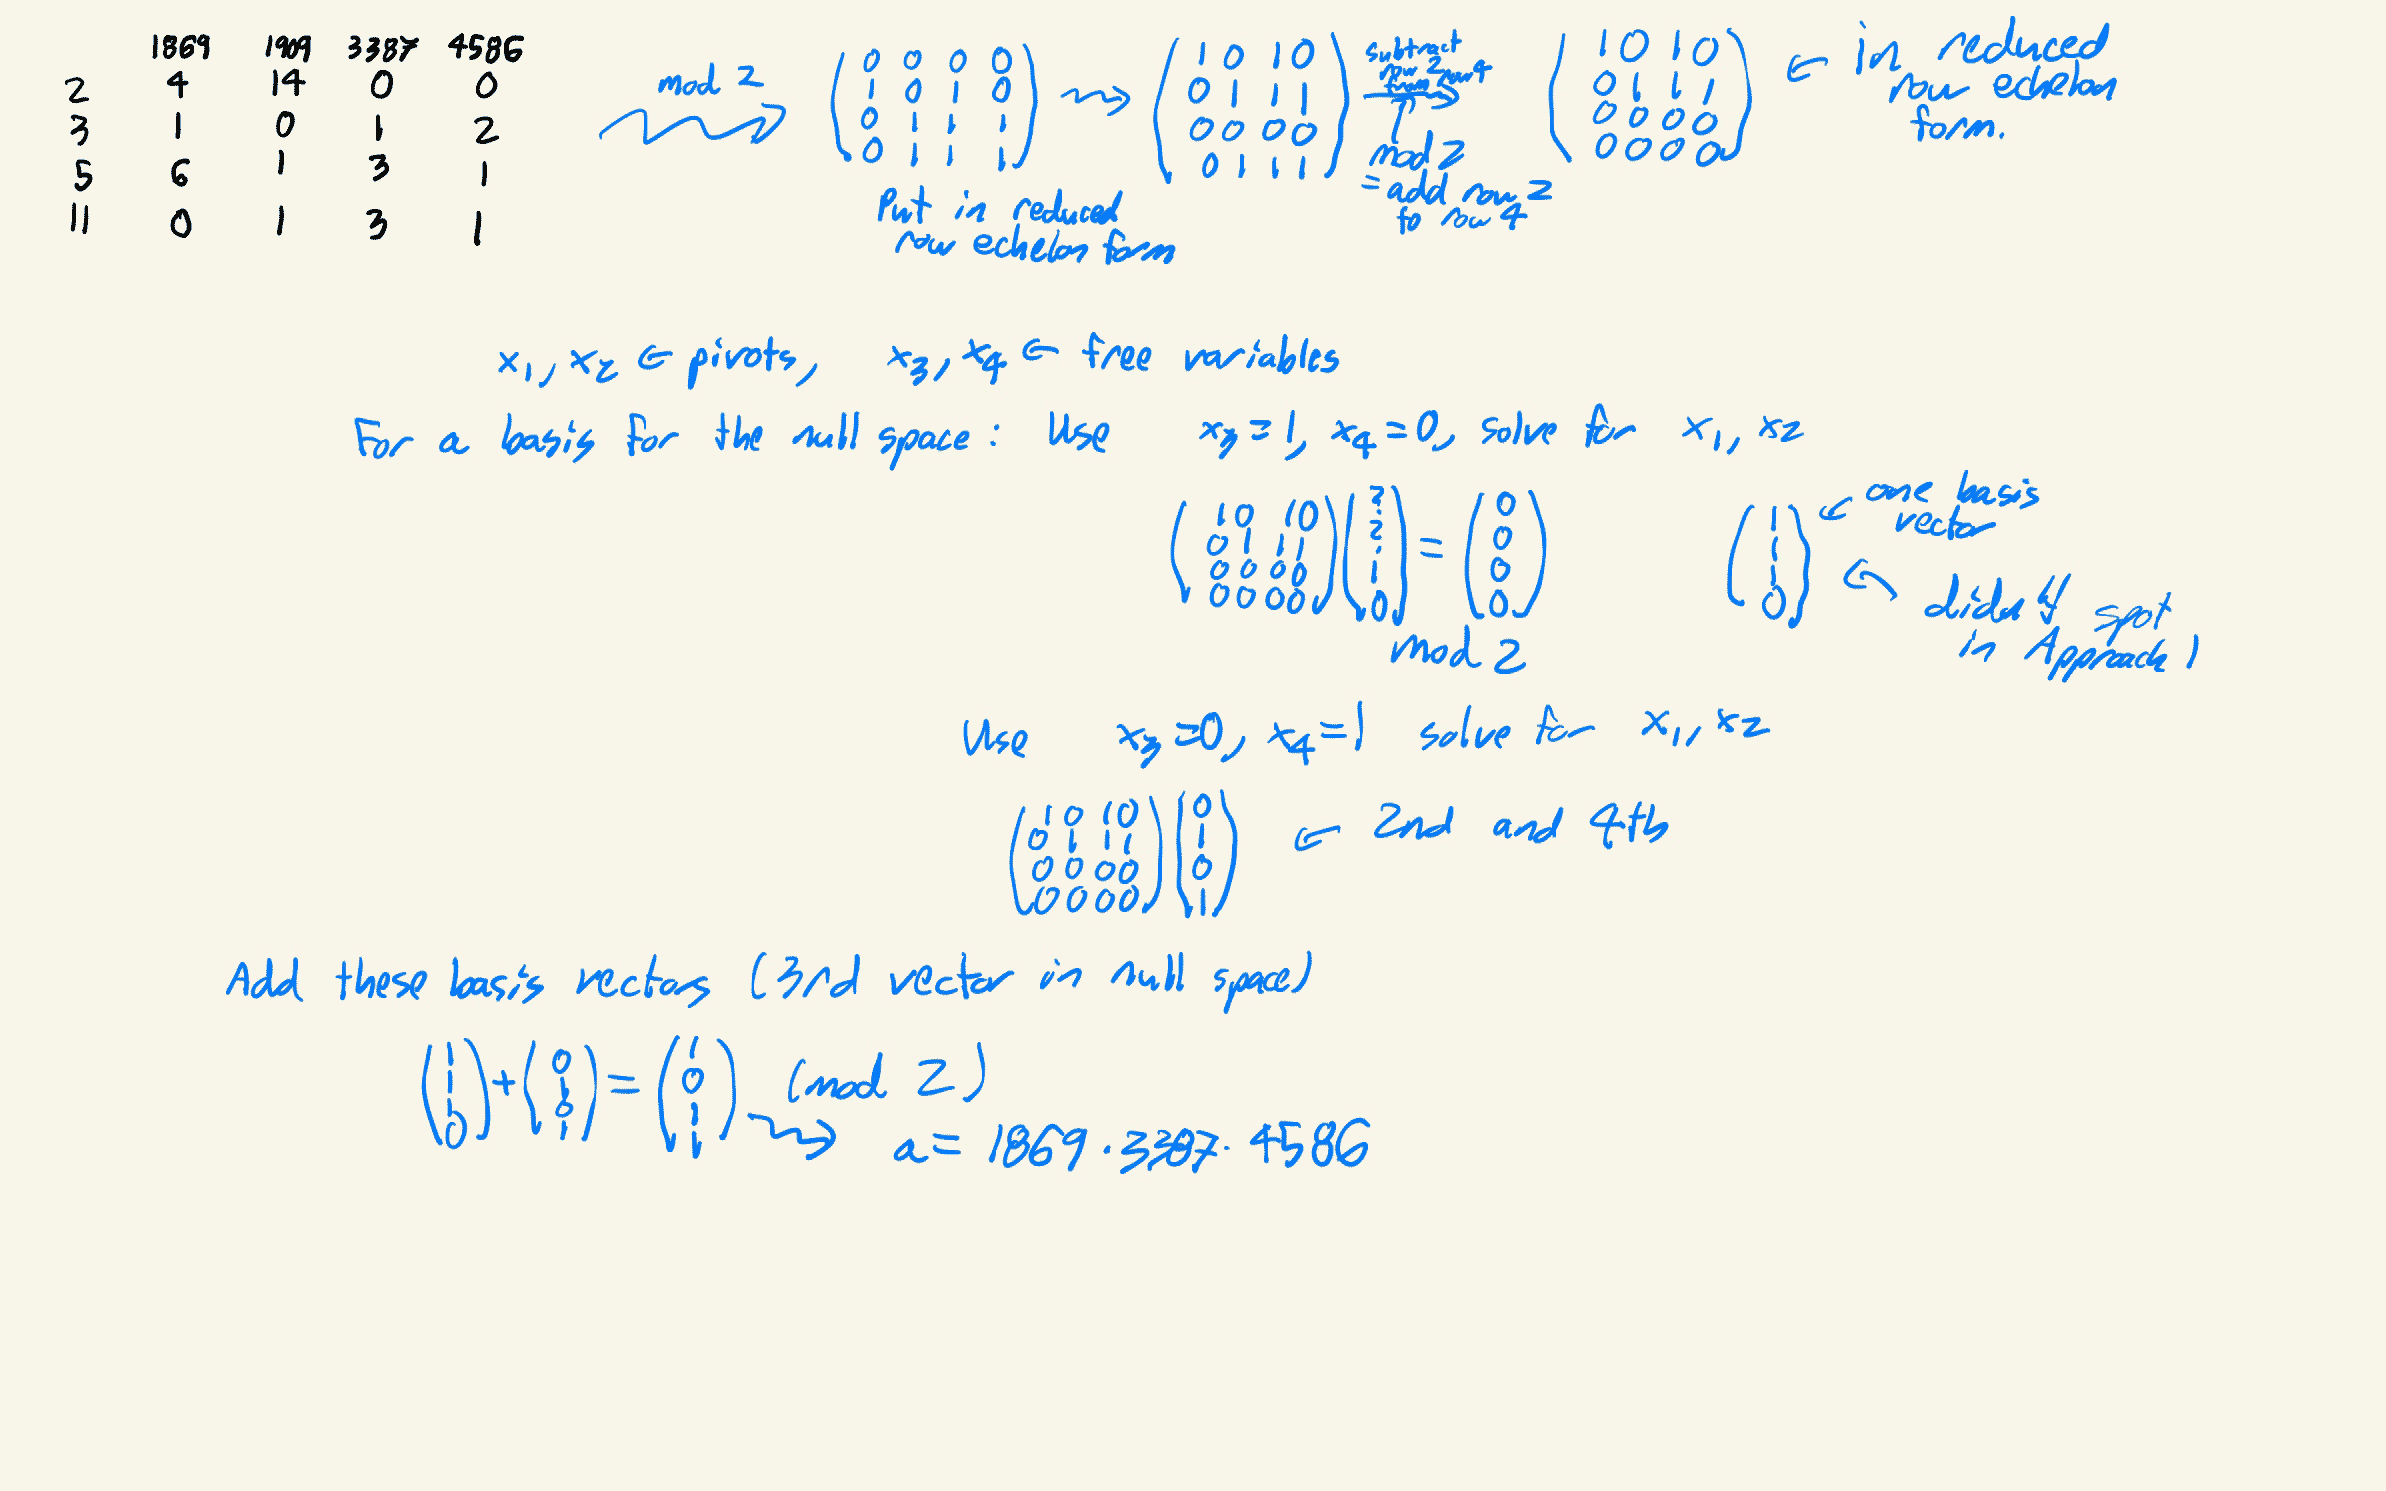 1869 1909 3387 4586
2 4 14 0 0
3 1 0 1 2
5 6 1 3 1
11 0 1 3 1
mod 2
0 0 0 0
1 0 1 0
0 1 1 1
0 1 1 1
Put in reduced
row echelon form
1 0 1 0
0 1 1 1
0 0 0 0
0 1 1 1
subtract
row 2
from row 4
mod 2
= add row 2
to row 4
1 0 1 0
0 1 1 1
0 0 0 0
0 0 0 0
in reduced
row echelon
form.
x1, x2 ← pivots, x3, x4 ← free variables
For a basis for the null space: Use x3 = 1, x4 = 0, solve for x1, x2
(1 0 1 0) (?) = (0)
(0 1 1 1) (?) (0)
(0 0 0 0) (1) (0)
(0 0 0 0) (0) (0)
mod 2
(1)
(1)
(1)
(0)
one basis
vector
didn't spot
in Approach 1
Use x3 = 0, x4 = 1 solve for x1, x2
(1 0 1 0) (0)
(0 1 1 1) (1)
(0 0 0 0) (0)
(0 0 0 0) (1)
← 2nd and 4th
Add these basis vectors (3rd vector in null space)
(1) + (0) = (1) (mod 2)
(1) (1) (0)
(1) (0) (1)
(0) (1) (1)
a = 1869 · 3387 · 4586